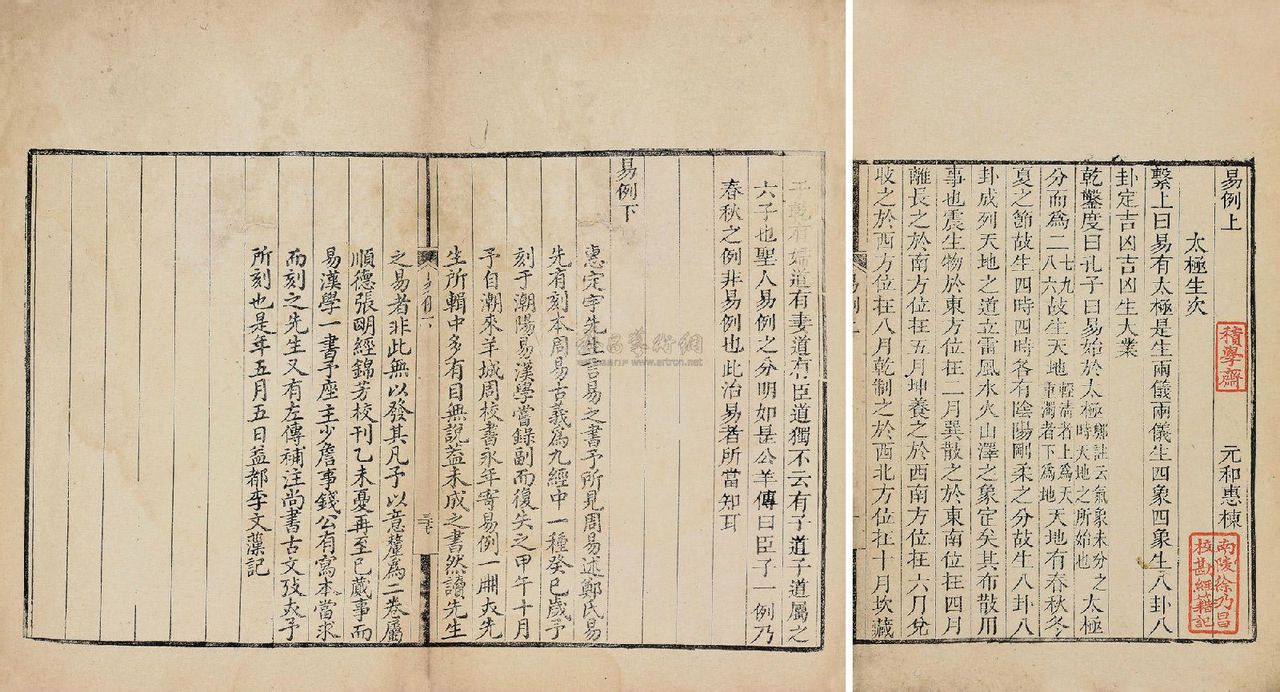 易例上
元和惠棟
太極生次
繫上曰易有太極是生兩儀兩儀生四象四象生八卦八
卦定吉凶吉凶生大業
乾鑿度曰孔子曰易始於太極鄭註云氣象未分之時天地之所始也太極
分而爲二七九八六故生天地輕清者上爲天重濁者下爲地天地有春秋冬
夏之節故生四時四時各有陰陽剛柔之分故生八卦八
卦成列天地之道立雷風水火山澤之象定矣其布散用
事也震生物於東方位在二月巽散之於東南位在四月
離長之於南方位在五月坤養之於西南方位在六月兌
收之於西方位在八月乾制之於西北方位在十月坎藏
積學齋
南陵徐乃昌
校勘經籍記
乾有婦道有妻道有臣道獨不云有子道子道屬之
六子也聖人易例之分明如是公羊傳曰臣子一例乃
春秋之例非易例也此治易者所當知耳
易例下
惠定宇先生言易之書予所見周易述鄭氏易
先有刻本周易古義爲九經中一種癸巳歲予
刻于潮陽易漢學嘗錄副而復失之甲午十月
予自潮來羊城周校書永年寄易例一冊求先
生所輯中多有目無說蓋未成之書然讀先生
之易者非此無以發其凡予以意釐爲二卷屬
順德張明經錦芳校刊乙未憂再至已蕆事而
易漢學一書予座主少詹事錢公有寫本當求
而刻之先生又有左傳補注尚書古文攷夾予
所刻也是年五月五日益都李文藻記
www.artron.net